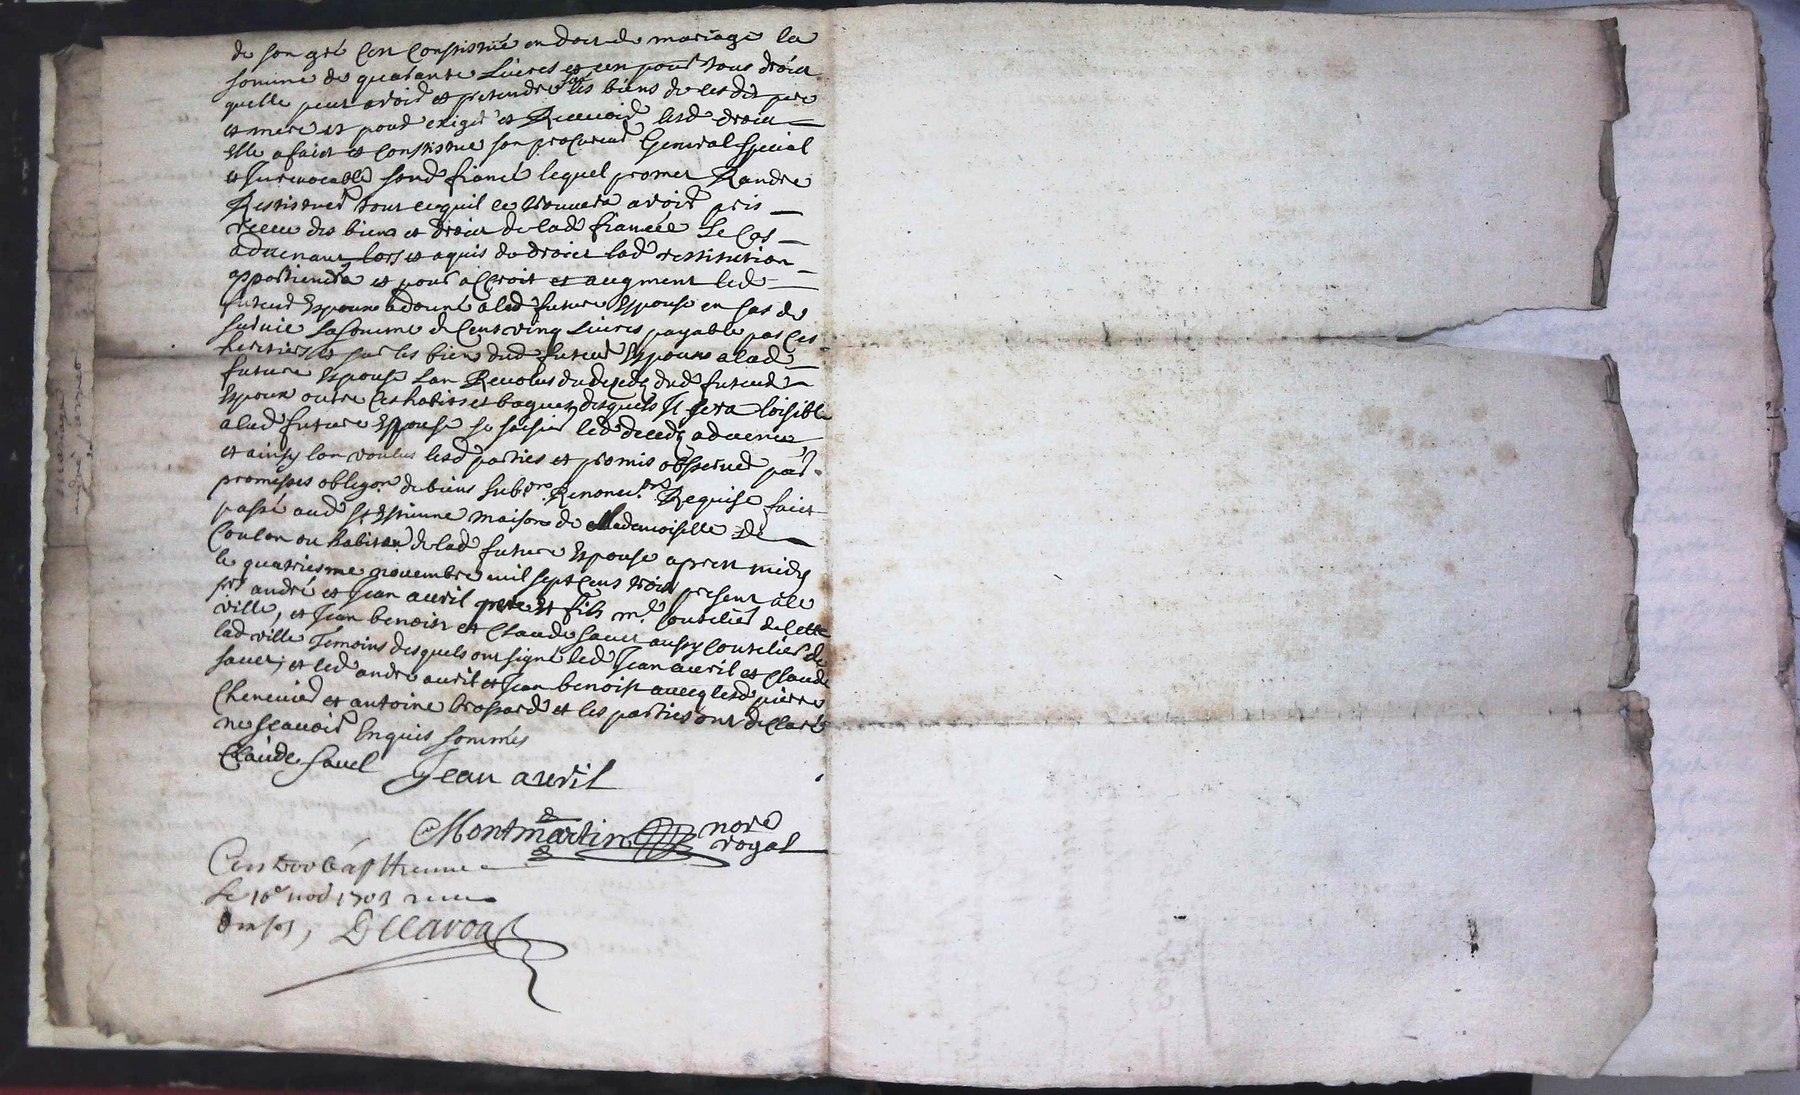 de son gré cest Constistué en doct de mariage la
somme de quarante Livres et cen pour tous droict
quelle peut avoir et pretendre sur les biens de ses dit pere
et mere et pour exiger et Recevoir lesd droict
Elle a faict et Constistue son procureur General Special
et Irrevocable sond fiancé lequel promet Randre
Restistuer tout ce quil ce trouvera avoir pris
receu des biens et droict de lad fiancée Le Cas
advenant lors et a quis de droict lad restitution
appartiendra et pour accroit et augment led
futeur Espoux a donné a lad future Espouse en cas de
survie la somme de Cent vingt Livres payable par ces
heritiers et sur les bien dud futeur Espoux a lad
future Espouse Lan Revolus du deceds dud futeur
Espoux outre ces habits et bagues desquels Il sera loisible
a lad future Espouse se saisir led deceds advenu
et ainsy lon voulus lesd parties et promis observer par
promesses obligon de biens Renonc. Requise faict
passé aud St Estienne maison de Mademoiselle De
Coulon ou habitan de lad future Espouse aprest midy
le quatriesme novembre mil sept cens trois present a ce
srs andré et Jean avril pere et fils mes Coutelier de cette
ville, et Jean benoist et Claude Savel aussy Coutelier de
lad ville Temoins desquels ont signé led Jean avril et Claude
Savel, et led andré avril et Jean benoist avecq lesd pierre
Chenevier et antoine brossard et les parties ont declaré
ne scavoir Enquis sommés
Claude Savel Jean avril
Montmartin nore
royal
St Etienne
Le 10e nov 1703 receu